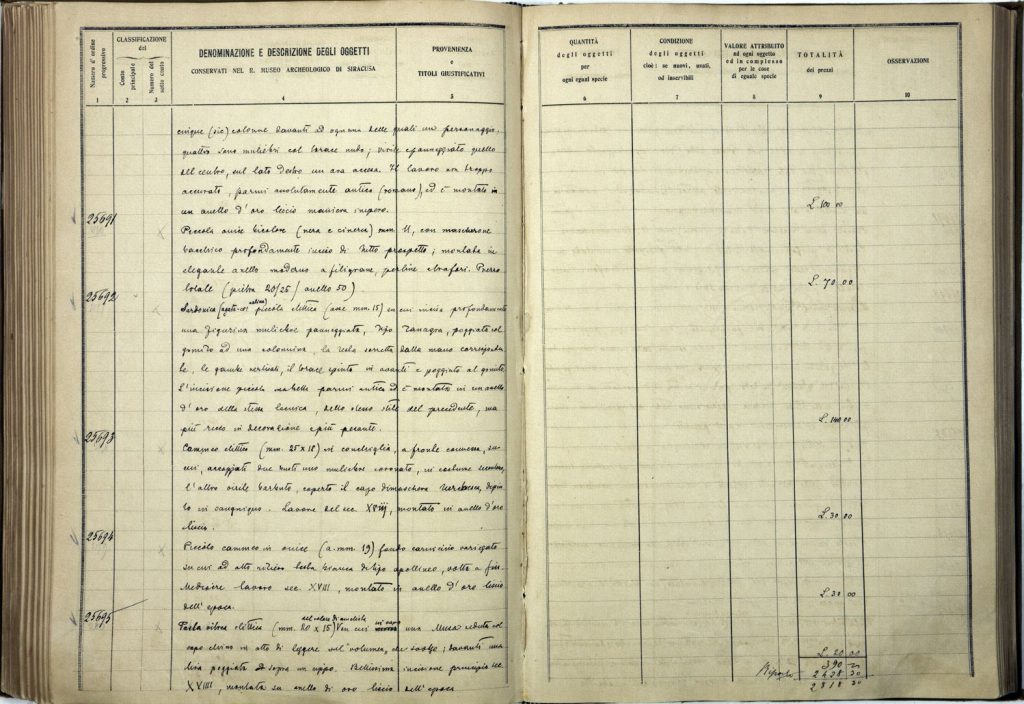 Numero d'ordine progressivo
CLASSIFICAZIONE del
Conto principale
Numero del sotto conto
DENOMINAZIONE E DESCRIZIONE DEGLI OGGETTI
CONSERVATI NEL R. MUSEO ARCHEOLOGICO DI SIRACUSA
PROVENIENZA
e
TITOLI GIUSTIFICATIVI
1 2 3 4 5
cinque (sic) colonne davanti ad ognuna delle quali un personaggio,
quattro sono muliebri col torace nudo; virile e panneggiato quello
del centro, sul lato destro un ara accesa. Il lavoro non troppo
accurato, parmi assolutamente antico (romano), ed è montato in
un anello d'oro liscio maniera impero.
25691
Piccola onice bicolore (nera e cinerea) mm. 11, con mascherone
bacchico profondamente inciso di tutto prospetto; montata in
elegante anello moderno a filigrana, perline e trafori. Prezzo
totale (pietra 20/25 / anello 50)
25692
Sardonica piccola elittica (asse mm. 15) su cui incisa profondamente
una figurina muliebre panneggiata, tipo Tanagra, poggiata col
gomito ad una colonnina, la testa sorretta dalla mano corrisponden
te, le gambe verticali, il torace spinto in avanti e poggiato al gomito
L'incisione piccola ma bella parmi antica ed è montata in un anello
d'oro della stessa tecnica, dello stesso stile del precedente, ma
più ricco in decorazione e più pesante.
25693
Cammeo elittico (mm. 25 x 18) in conchiglia, a fronte convessa, su
cui, accoppiati due busti uno muliebre coronato, in costume
l'altro virile barbuto, coperto il capo di maschera
to in sanguigno. Lavoro del sec. XVIII, montato in anello d'oro
liscio.
25694
Piccolo cammeo in onice (a. mm. 19) fondo carnicino variegato
su cui ad alto rilievo testa bianca di tipo apollineo, volta a
Mediocre lavoro sec. XVIII, montato in anello d'oro liscio
dell'epoca.
25695
Pasta vitrea elittica (mm. 20 x 15) su cui in cavo una Musa seduta col
capo chino in atto di leggere nel volumen, che svolge; davanti una
lira poggiata sopra un cippo. Bellissima incisione principio sec.
XVIII, montata su anello di oro liscio dell'epoca
QUANTITÀ
degli oggetti
per
ogni eguai specie
CONDIZIONE
degli oggetti
cioè: se nuovi, usati,
od inservibili
VALORE ATTRIBUITO
ad ogni oggetto
ed in complesso
per le cose
di eguale specie
TOTALITÀ
dei prezzi
OSSERVAZIONI
6 7 8 9 10
L. 100 00
L. 70 00
L. 140 00
L. 30 00
L. 30 00
L. 20 00
390
Riporto 2438 30
2818 30